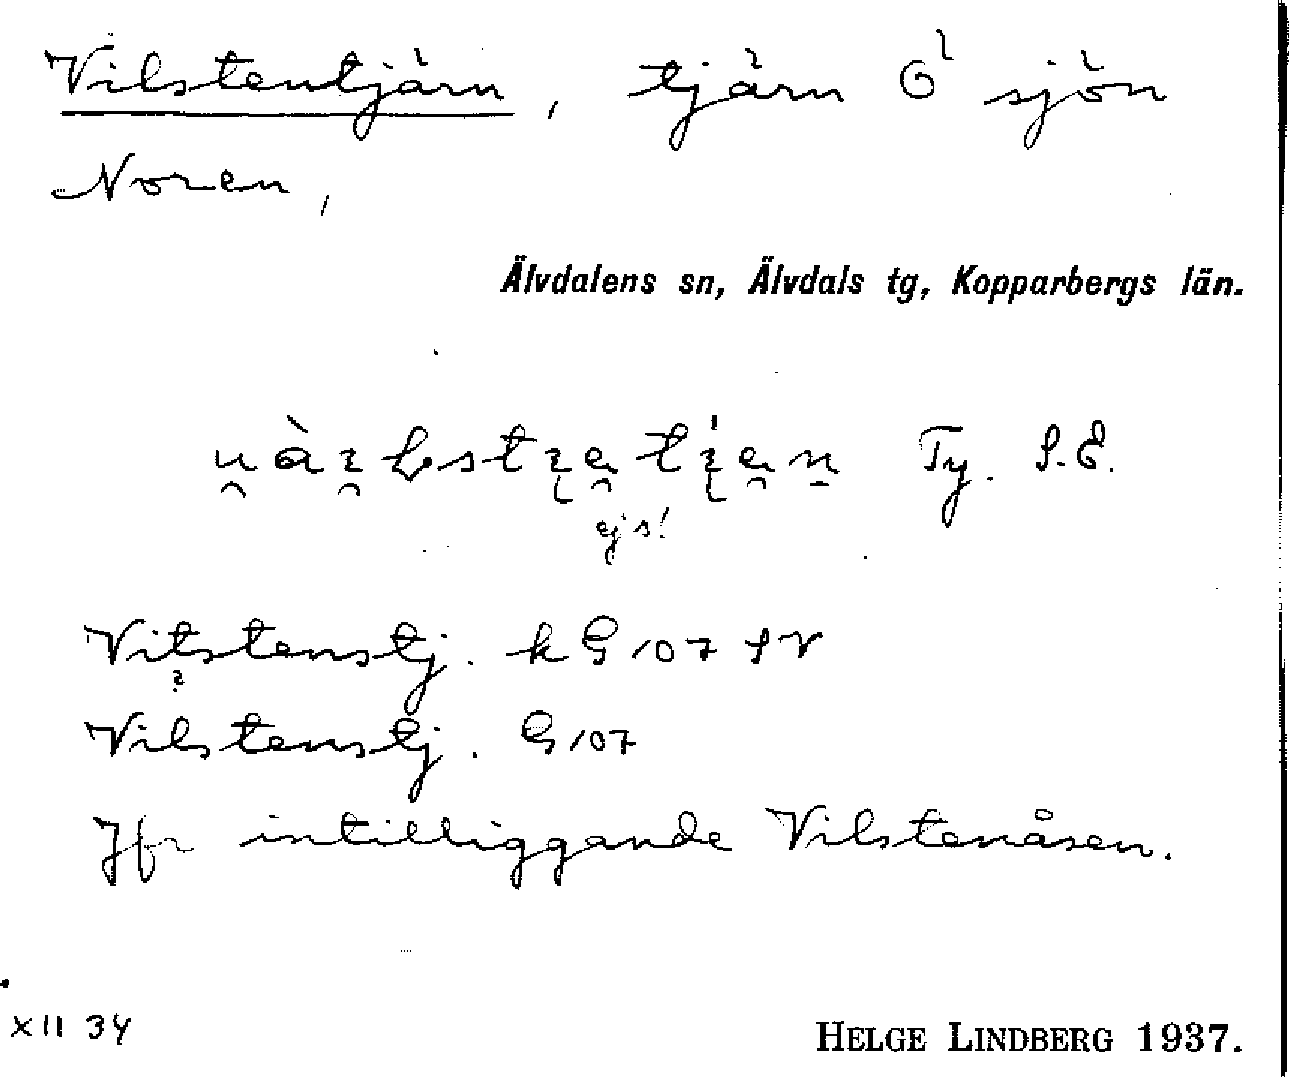 Vilstentjärn, tjärn Ö sjön
Noren,
Älvdalens sn, Älvdals tg, Kopparbergs län.
Ty. S.E.
ej s!
Vitstenstj. k G 107 SV
?
Vilstenstj. G 107
Jfr intilliggande Vilstenåsen.
XII 34
HELGE LINDBERG 1937.